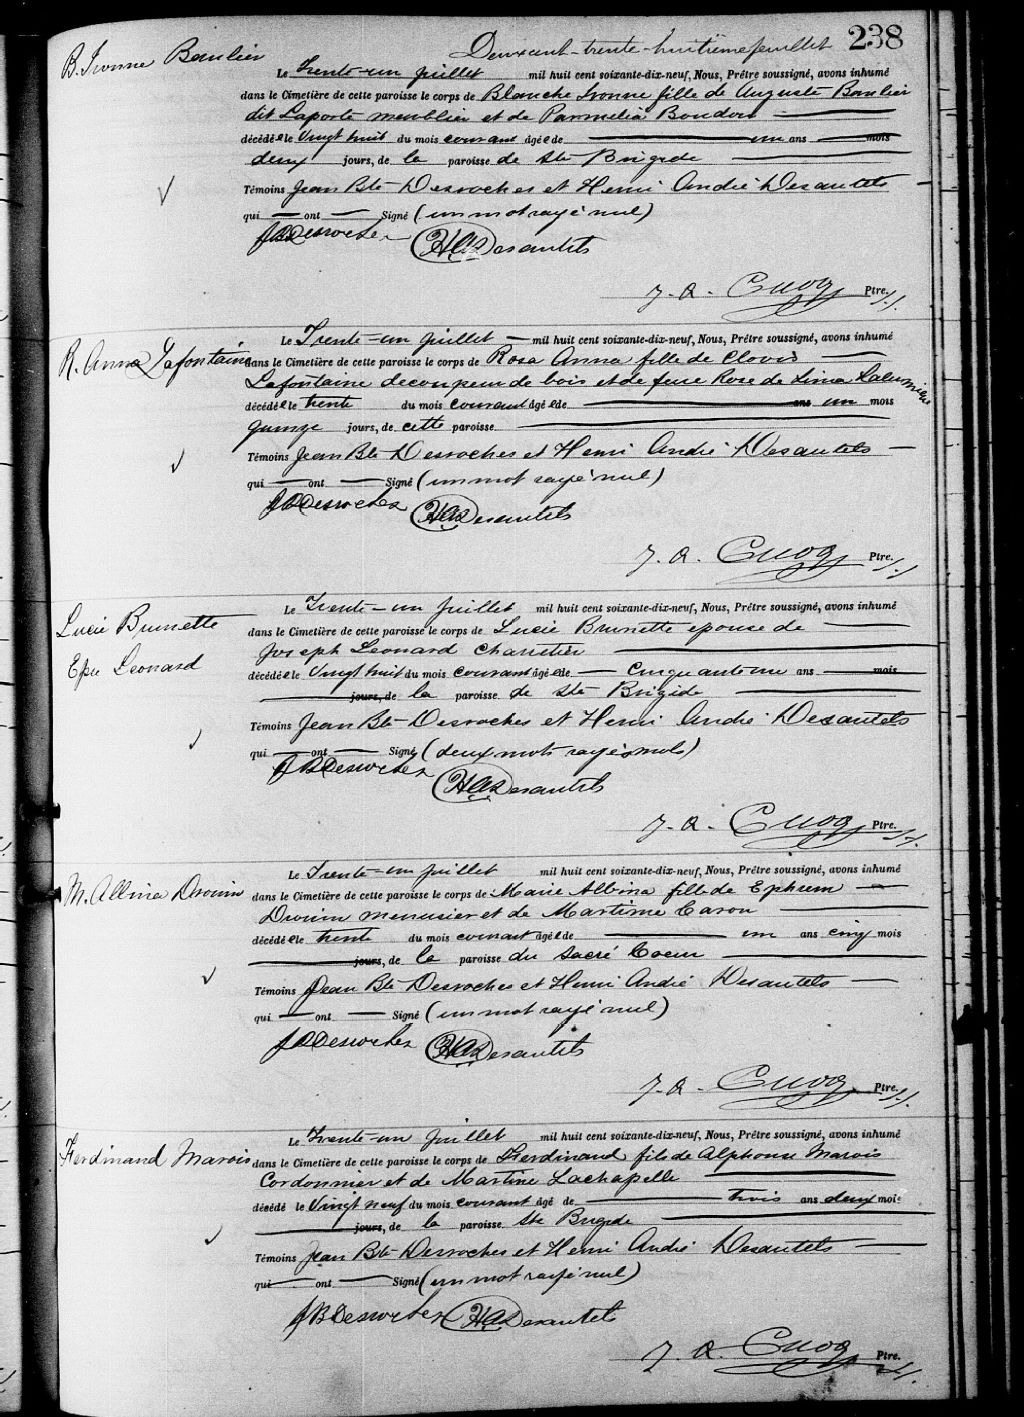 Deux cent-trente-huitième feuillet 238
B. Ivonne Baulier
Le Trente-un juillet mil huit cent soixante-dix-neuf, Nous, Prêtre soussigné, avons inhumé
dans le Cimetière de cette paroisse le corps de Blanche Ivonne fille de Auguste Baulier
dit Laporte meublier et de Parmelia Boudois
décédée le Vingt huit du mois courant âgée de un ans mois
deux jours, de la paroisse de Ste Brigide
Témoins Jean Bte Desroches et Henri André Desautels
qui ont Signé (un mot rayé nul)
JBDesroches HADesautels
J. A. Cuoq Ptre. S.S.
R. Anna Lafontaine
Le Trente-un juillet mil huit cent soixante-dix-neuf, Nous, Prêtre soussigné, avons inhumé
dans le Cimetière de cette paroisse le corps de Rosa Anna fille de Clovis
Lafontaine decoupeur de bois et de feue Rose de Lima Lalumière
décédée le trente du mois courant âgée de ans un mois
quinze jours, de cette paroisse
Témoins Jean Bte Desroches et Henri André Desautels
qui ont Signé (un mot rayé nul)
JBDesroches HADesautels
J. A. Cuoq Ptre. S.S.
Lucie Brunette
Epse Leonard
Le Trente-un juillet mil huit cent soixante-dix-neuf, Nous, Prêtre soussigné, avons inhumé
dans le Cimetière de cette paroisse le corps de Lucie Brunette epouse de
Joseph Leonard Charretier
décédée le Vingt huit du mois courant âgée de Cinquante un ans mois
jours, de la paroisse de Ste Brigide
Témoins Jean Bte Desroches et Henri André Desautels
qui ont Signé (deux mots rayés nuls)
JBDesroches HADesautels
J. A. Cuoq Ptre. S.S.
M. Albina Drouin
Le Trente-un juillet mil huit cent soixante-dix-neuf, Nous, Prêtre soussigné, avons inhumé
dans le Cimetière de cette paroisse le corps de Marie Albina fille de Ephrem
Drouin menusier et de Martime Caron
décédée le trente du mois courant âgée de un ans cinq mois
jours, de la paroisse du Sacré Coeur
Témoins Jean Bte Desroches et Henri André Desautels
qui ont Signé (un mot rayé nul)
JBDesroches HADesautels
J. A. Cuoq Ptre. S.S.
Ferdinand Marois
Le Trente-un juillet mil huit cent soixante-dix-neuf, Nous, Prêtre soussigné, avons inhumé
dans le Cimetière de cette paroisse le corps de Ferdinand fils de Alphonse Marois
Cordonnier et de Martine Lachapelle
décédé le Vingt neuf du mois courant âgé de trois ans deux mois
jours, de la paroisse Ste Brigide
Témoins Jean Bte Desroches et Henri André Desautels
qui ont Signé (un mot rayé nul)
JBDesroches HADesautels
J. A. Cuoq Ptre. S.S.